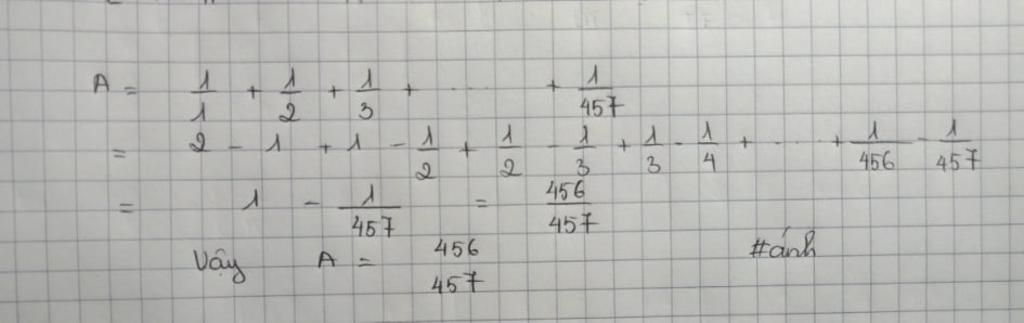 A = 1/1 + 1/2 + 1/3 + ........ + 1/457
= 2 - 1 + 1 - 1/2 + 1/2 - 1/3 + 1/3 - 1/4 + ..... + 1/456 - 1/457
= 1 - 1/457 = 456/457
Vậy A = 456/457 #ánh